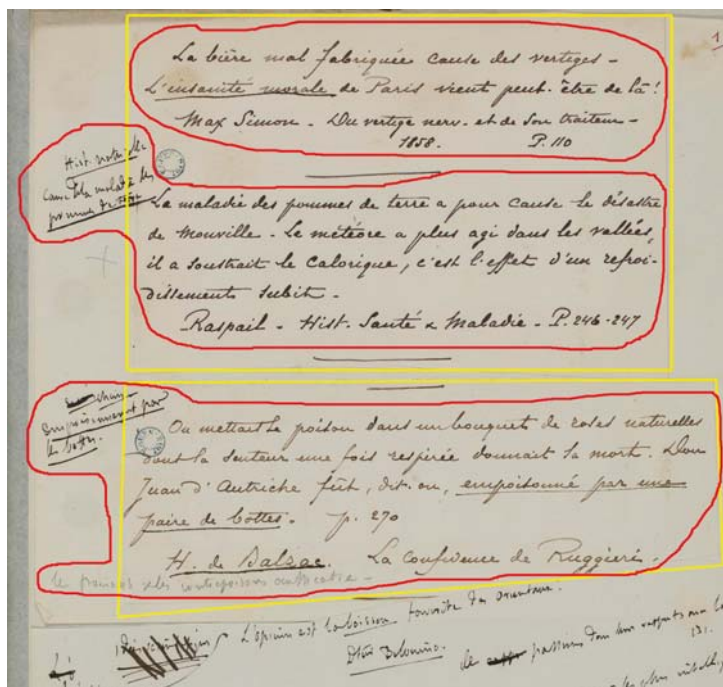 1
La bière mal fabriquée cause des vertiges -
L'insanité morale de Paris vient peut-être de là!
Max Simon - Du vertige nerv. et de son traitem -
1858. P. 110
Hist. naturelle
Cause de la maladie des
pommes de terre
La maladie des pommes de terre a pour cause le désastre
de Monville - Le météore a plus agi dans les vallées,
il a soustrait le calorique, c'est l'effet d'un refroi-
dissements subit -
Raspail - Hist. Santé & Maladie - P. 246-247
empoisonnement par
les bottes.
On mettait le poison dans un bouquet de roses naturelles
dont la senteur une fois respirée donnait la mort. Don
Juan d'Autriche fût, dit-on, empoisonné par une
paire de bottes. p. 270
H. de Balzac. La confidence de Ruggieri.
le
L'opium est la boisson favorite des orientaux.
passions dans leurs rapports
131.